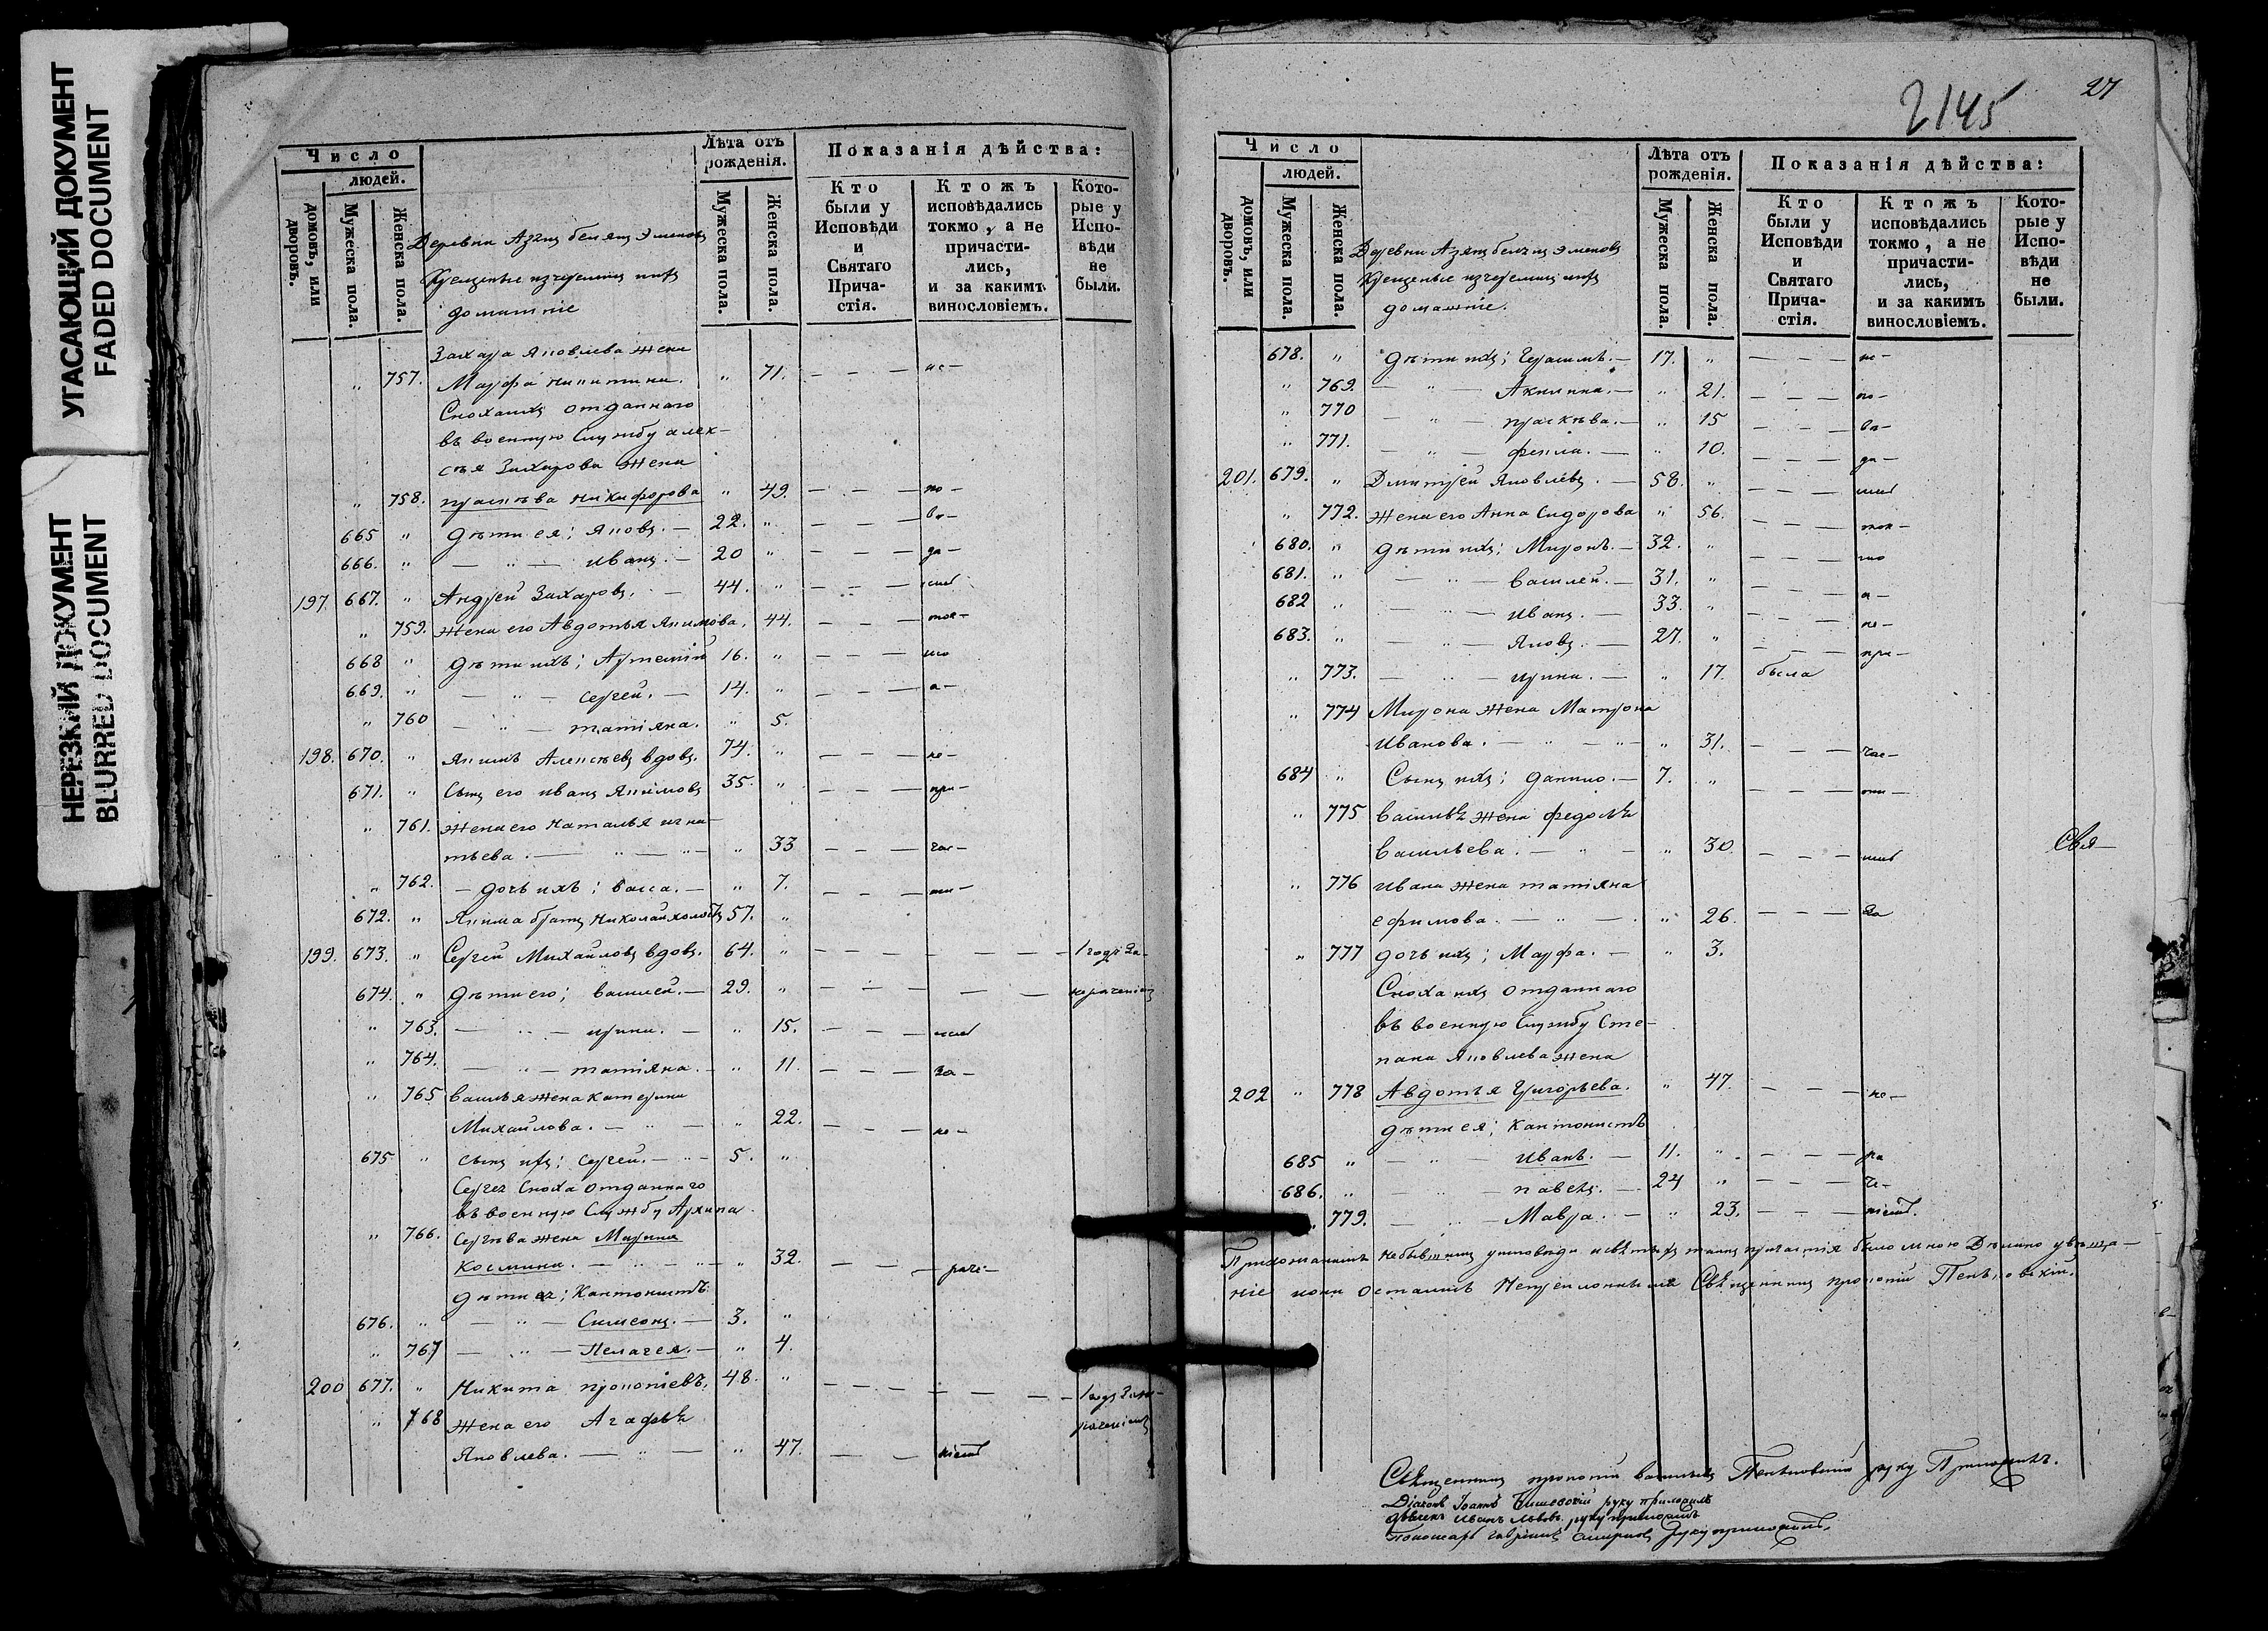 УГАСАЮЩИЙ ДОКУМЕНТ
FADED DOCUMENT
НЕРЕЗКИЙ ДОКУМЕНТ
BLURRED DOCUMENT
Число
людей.
домовъ, или дворовъ.
Мужеска пола.
Женска пола.
Деревни
домашніе
Лѣта отъ рожденія.
Мужеска пола.
Женска пола.
Показанія дѣйства:
Кто были у Исповѣди и Святаго Причастія.
Ктожъ исповѣдались токмо, а не причастились, и за какимъ винословіемъ.
Которые у Исповѣди не были.
Захара Яковлева жена
" 757. Марфа Никитина. " 71. — — — не-
Сноха ихъ отданнаго
въ военную службу Алек-
сѣя Захарова жена
" 758. Прасковья Никифорова " 49. — — — по-
665 " Дѣти ея; Яковъ. — 22. " — — — во-
666. " — " — Иванъ. — 20 " — — — да-
197. 667. " Андрей Захаровъ. — 44. " — — —
" 759. жена его Авдотья Якимова. 44. — — —
668 " Дѣти ихъ; Артемій 16. " — — —
669. " — " — Сергей. — 14. " — — — а-
" 760 — " — Татіяна. " 5.
198. 670. " Якимъ Алексѣевъ вдовъ. 74. " — — — не-
671. " Сынъ его Иванъ Якимовъ 35. " — — — при-
" 761. жена его Наталья Игна-
тьева. — " — " — " 33 — — — час-
" 762. — дочь ихъ; Васса. — " 7. — — — ти-
672. " Якима братъ Николай холостъ 57. "
199. 673. " Сергей Михайловъ вдовъ. 64. " — — — — — — 1 годъ за
674. " Дѣти его; Василей. — 29. " — — — — — нераченіемъ
" 763. — " — Ирина. — " 15. — — —
" 764. — " — Татіяна. — " 11. — — — за-
" 765 Василья жена Катерина
Михайлова. — " — " 22. — — — не-
675 " Сынъ ихъ; Сергей. — " — 5. "
Сергея сноха отданнаго
въ военную службу Архипа
" 766. Сергѣева жена Марина
Космина. — " — " — " 32. — — — раче-
Дѣти ея; Кантонистъ
676. " — " — Симеонъ. — 3. "
" 767 — " — Пелагея. — " 4.
200 677. " Никита Прокопіевъ. 48. " — — — — — — 1 годъ за не-
" 768 жена его Агафья раченіемъ
Яковлева. — " — " 47. — — ніемъ
2145
27
Число
людей.
домовъ, или дворовъ.
Мужеска пола.
Женска пола.
Деревни
домашніе.
Лѣта отъ рожденія.
Мужеска пола.
Женска пола.
Показанія дѣйства:
Кто были у Исповѣди и Святаго Причастія.
Ктожъ исповѣдались токмо, а не причастились, и за какимъ винословіемъ.
Которые у Исповѣди не были.
678. " Дѣти ихъ; Герасимъ. — 17. " — — — не-
" 769. — " — Акилина. — " 21. — — — по-
" 770 — " — Прасковья. — " 15 — — — во-
" 771. — " — Фекла. — " 10. — — — да-
201. 679. " Дмитрей Яковлевъ. — 58. " — — —
" 772. жена его Анна Сидорова " 56. — — —
680. " Дѣти ихъ; Миронъ. — 32. " — — —
681. " — " — Василей. — 31. " — — — а-
682 " — " — Иванъ. — 33. " — — — не-
683. " — " — Яковъ. — 27. " — — — при-
" 773. — " — Ирина. — " 17. была
" 774 Мирона жена Матрона
Иванова. — " — " — " 31. — — — час-
684 " Сынъ ихъ; Данило. — 7. " — — — ти-
" 775 Василья жена Федосья
Васильева. — " — " 30. — — —
Свя-
" 776 Ивана жена Татіяна
Ефимова. — " — " 26. — — — за
" 777 дочь ихъ; Марфа. — " 3.
Сноха ихъ отданнаго
въ военную службу Сте-
пана Яковлева жена
202 " 778 Авдотья Григорьева. " 47. — — — не-
Дѣти ея; Кантонистъ
685 " — " — Иванъ. — 11. " — — — ра
686. " — " — Павелъ. — 24 " — — — че-
" 779. — " — Мавра. — " 23. — — — ніемъ.
Прихожанамъ небывшимъ у исповѣди и святыхъ таинъ причастія было мною дѣлано увѣща-
ніе но они остались непреклонными Священникъ Прокопій
Священникъ Прокопій Васильевъ руку приложилъ.
Діаконъ Іоаннъ руку приложилъ
Дьячекъ Иванъ Львовъ руку приложилъ
Пономарь Гавріилъ Смирновъ руку приложилъ.